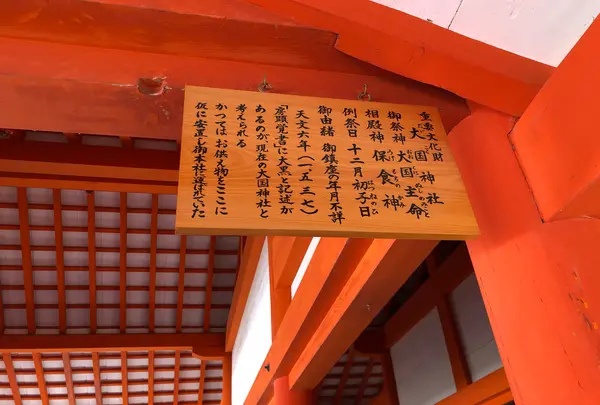 重要文化財
大国神社
御祭神 大国主命
相殿神 保食神
例祭日 十二月初子日
御由緒 御鎮座の年月不詳
天文六年(一五三七)
「房顕覚書」に大黒と記述が
あるのが、現在の大国神社と
考えられる
かつてはお供え物をここに
仮に安置し御本社に運ばれていた